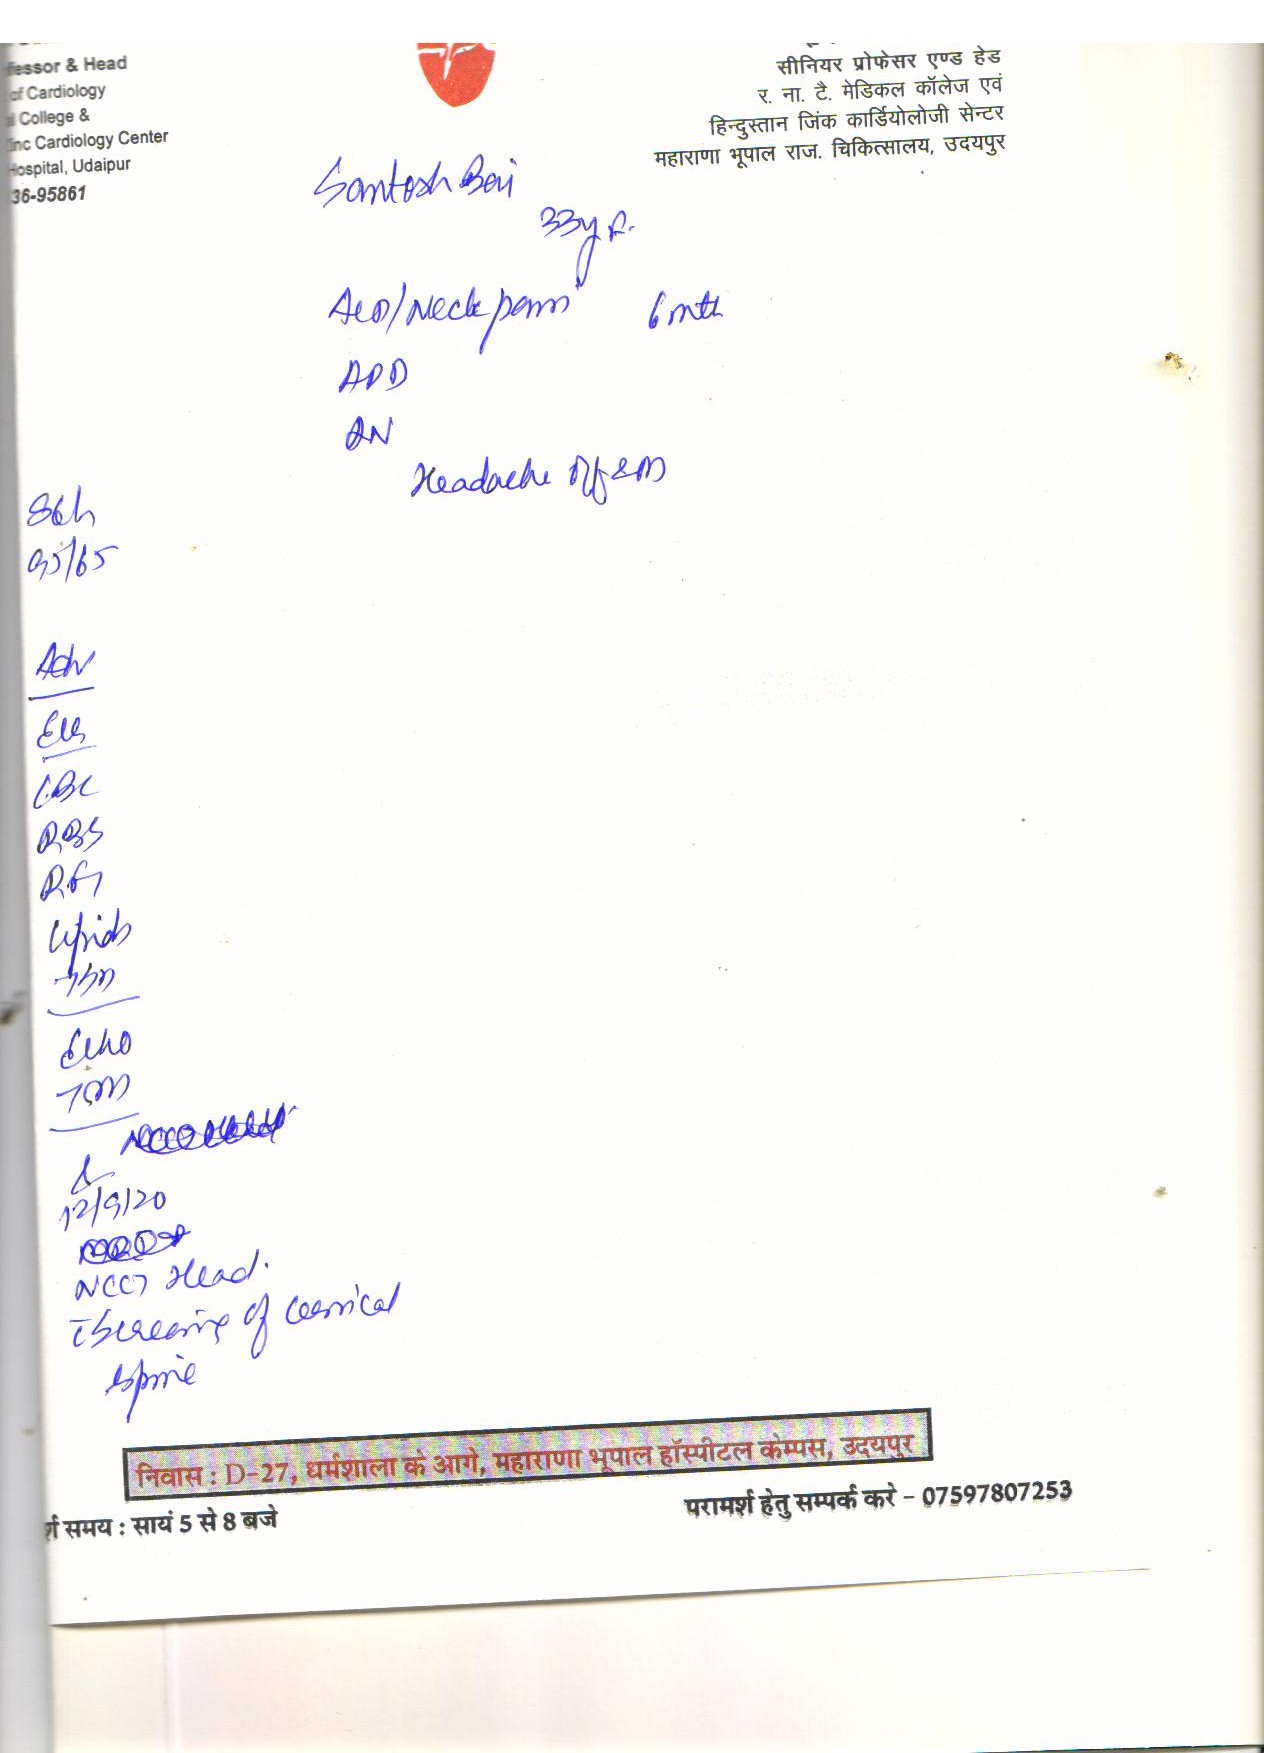 fessor & Head
of Cardiology
l College &
Zinc Cardiology Center
Hospital, Udaipur
36-95861
सीनियर प्रोफेसर एण्ड हेड
र. ना. टै. मेडिकल कॉलेज एवं
हिन्दुस्तान जिंक कार्डियोलोजी सेन्टर
महाराणा भूपाल राज. चिकित्सालय, उदयपुर
Santosh Bai
33y F.
Neck pain 6 mth
APD
Headache
95/65
Adv
CBC
RBS
RFT
Lipids
Echo
12/9/20
NCCT Head.
Screening of cervical
spine
निवास : D-27, धर्मशाला के आगे, महाराणा भूपाल हॉस्पीटल केम्पस, उदयपुर
र्श समय : सायं 5 से 8 बजे
परामर्श हेतु सम्पर्क करे - 07597807253